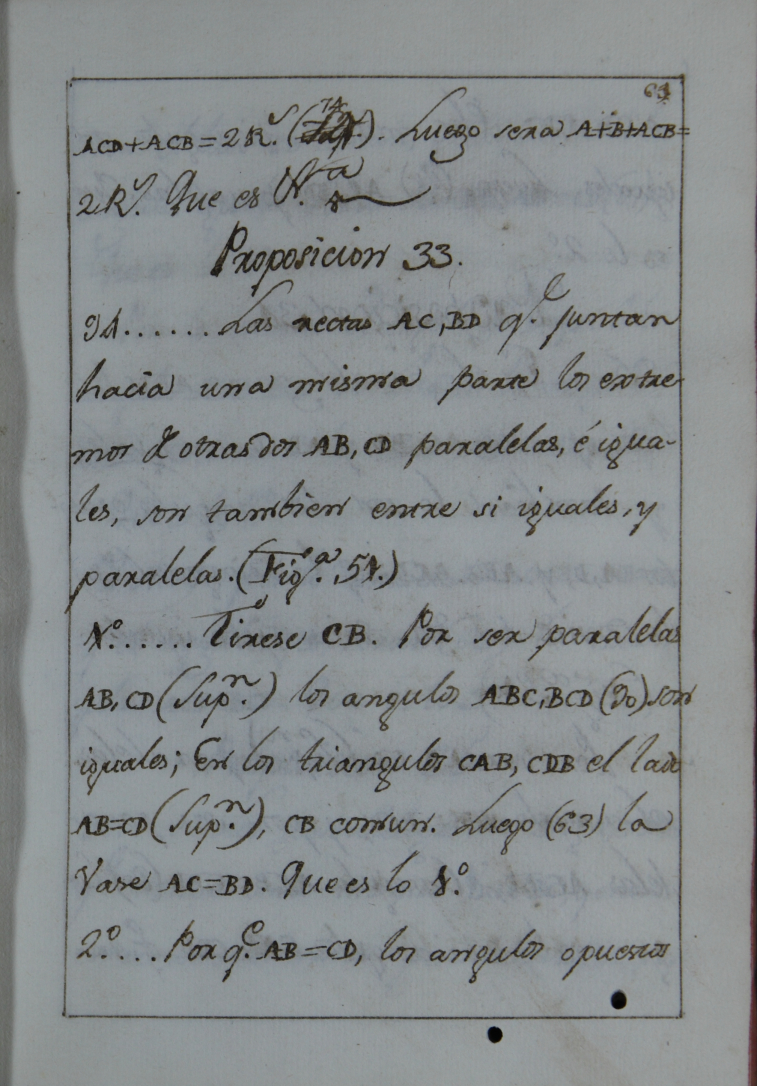 61
ACD+ACB=2R.s (74). Luego sera A+B+ACB=
2R.s Que es
Proposicion 33.
94......Las rectas AC,BD q.e juntan
hacia una misma parte los extre-
mos de otras dos AB,CD paralelas, é igua-
les, son tambien entre si iguales, y
paralelas. (Fig.a 51.)
1.o......Tirese CB. Por ser paralelas
AB,CD (Sup.n) los angulos ABC,BCD (90) son
iguales; En los triangulos CAB, CDB el lado
AB=CD (Sup.n), CB comun. Luego (63) la
Vase AC=BD. Que es lo 1.o
2.o....Porq.e AB=CD, los angulos opuestos